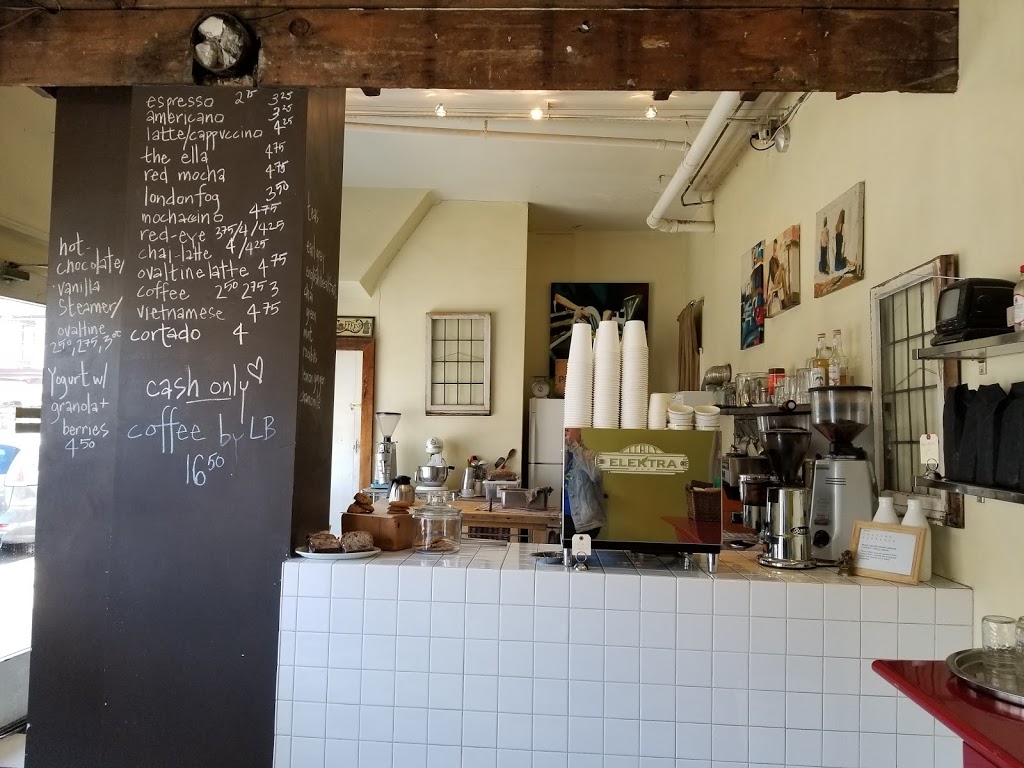 espresso 2²⁵ 3²⁵
americano 3²⁵
latte/cappuccino 4²⁵
the ella 4⁷⁵
red mocha 4⁷⁵
london fog 3⁵⁰
mochaccino 4⁷⁵
red-eye 3⁷⁵/4/4²⁵
chai-latte 4/4²⁵
ovaltine latte 4⁷⁵
coffee 2⁵⁰ 2⁷⁵ 3
vietnamese 4⁷⁵
cortado 4
cash only♡
coffee by LB
16⁵⁰
hot-
chocolate/
vanilla
steamer/
ovaltine
2⁵⁰, 2⁷⁵, 3⁰⁰
Yogurt w/
granola+
berries
4⁵⁰
ELEKTRA